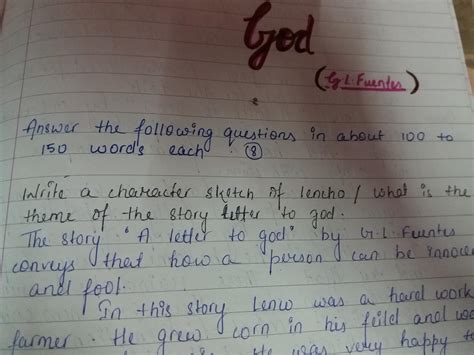 God
(G.L. Fuentes)
Answer the following questions in about 100 to
150 words each. (8)
Write a character sketch of lencho / what is the
theme of the story letter to god.
The story "A letter to god" by G.L. Fuentes
conveys that how a person can be innocen
and fool.
In this story was a hard work
farmer. He grew corn in his feild and
He was very happy